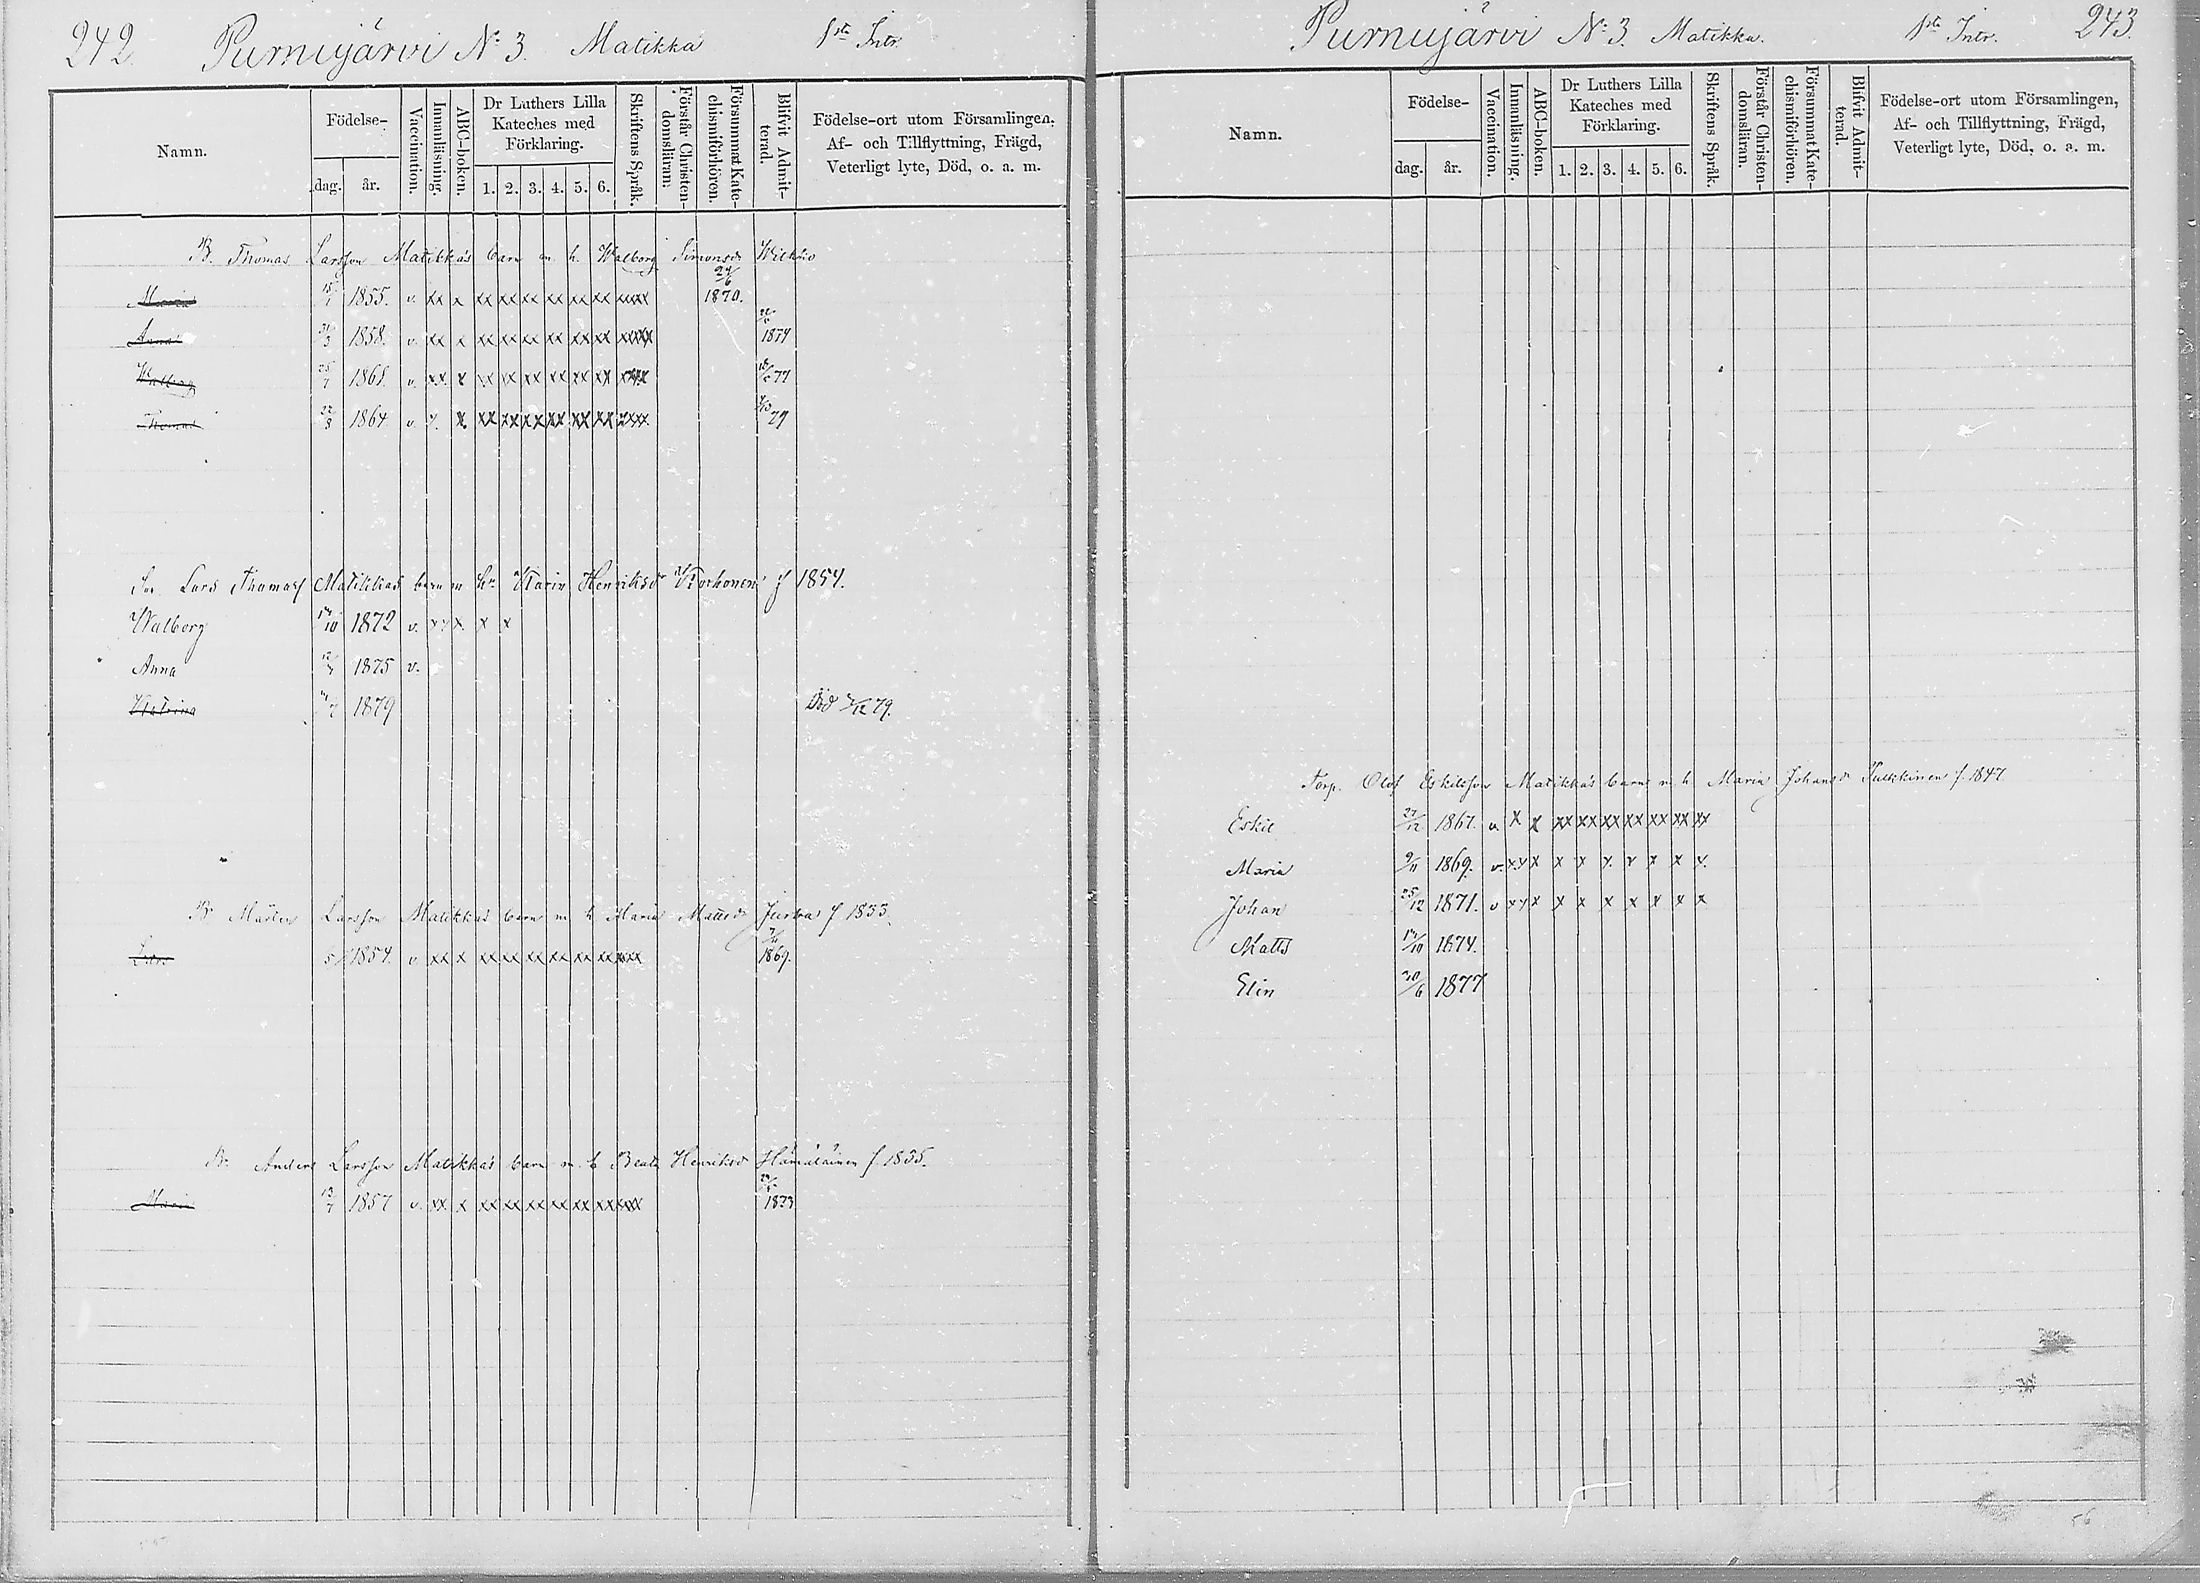 242. Purnujärvi N:o 3. Matikka 1sta Intr.
Namn. Födelse- dag. år. Vaccination. Innanläsning. ABC-boken. Dr Luthers Lilla Kateches med Förklaring. 1. 2. 3. 4. 5. 6. Skriftens Språk. Förstår Christendomsläran. Försummat Katechismiförhören. Blifvit Admitterad. Födelse-ort utom Församlingen, Af- och Tillflyttning, Frägd, Veterligt lyte, Död, o. a. m.
B. Thomas Larsson Matikkas barn m. h. Walborg Simonsdr Wilkko
Maria 15/1 1855. v. xx x xx xx xx xx xx xx xxxx 24/6 1870.
Anna 1858. v. xx x xx xx xx xx xx xx xxxx 1874
Walborg 25/7 1861. v. xx. x xx xx xx xx xx xx xxxx 77
Thomas 22/3 1864. v. x. x xx xx xx xx xx xx xxxx 79
Lars Thomass Matikkas barn m h. Karin Henriksdr Korhonen f 1854.
Walborg 1872 v. xx x x x
Anna 1875 v.
Katrina 1879 Död 79.
B. Mårten Larsson Matikkas barn m h Maria Mattsdr f 1833.
Lars 1854. v xx x xx xx xx xx xx xx xxxx 1869.
B. Anders Larsson Matikkas barn m. h Beata Henriksdr Hämäläinen f. 1835.
Maria 13/7 1857 v. xx x xx xx xx xx xx xx xxxx 1873
Purnujärvi N:o 3. Matikka. 1sta Intr. 243.
Namn. Födelse- dag. år. Vaccination. Innanläsning. ABC-boken. Dr Luthers Lilla Kateches med Förklaring. 1. 2. 3. 4. 5. 6. Skriftens Språk. Förstår Christendomsläran. Försummat Katechismiförhören. Blifvit Admitterad. Födelse-ort utom Församlingen, Af- och Tillflyttning, Frägd, Veterligt lyte, Död, o. a. m.
Torp. Olof Eskilsson Matikkas barn m. h. Maria Johansdr Pulkkinen f. 1847.
Eskil 27/12 1867. v. x x xx xx xx xx xx xx xx
Maria 9/11 1869. v. xx x x x x. x x x x.
Johan 25/12 1871. v xx x x x x x x x x
Matts 1874.
Elin 20/6 1877
56